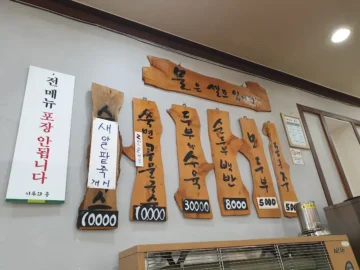 ·전 메뉴
포장 안됩니다
물은 셀프 입니다
새알팥죽
개시
10000
쑥면 콩물국수
10000
두부와 수육
30000
순두부 백반
8000
모두부
5000